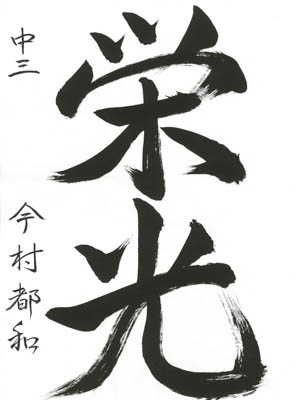 栄光
中三 今村都和